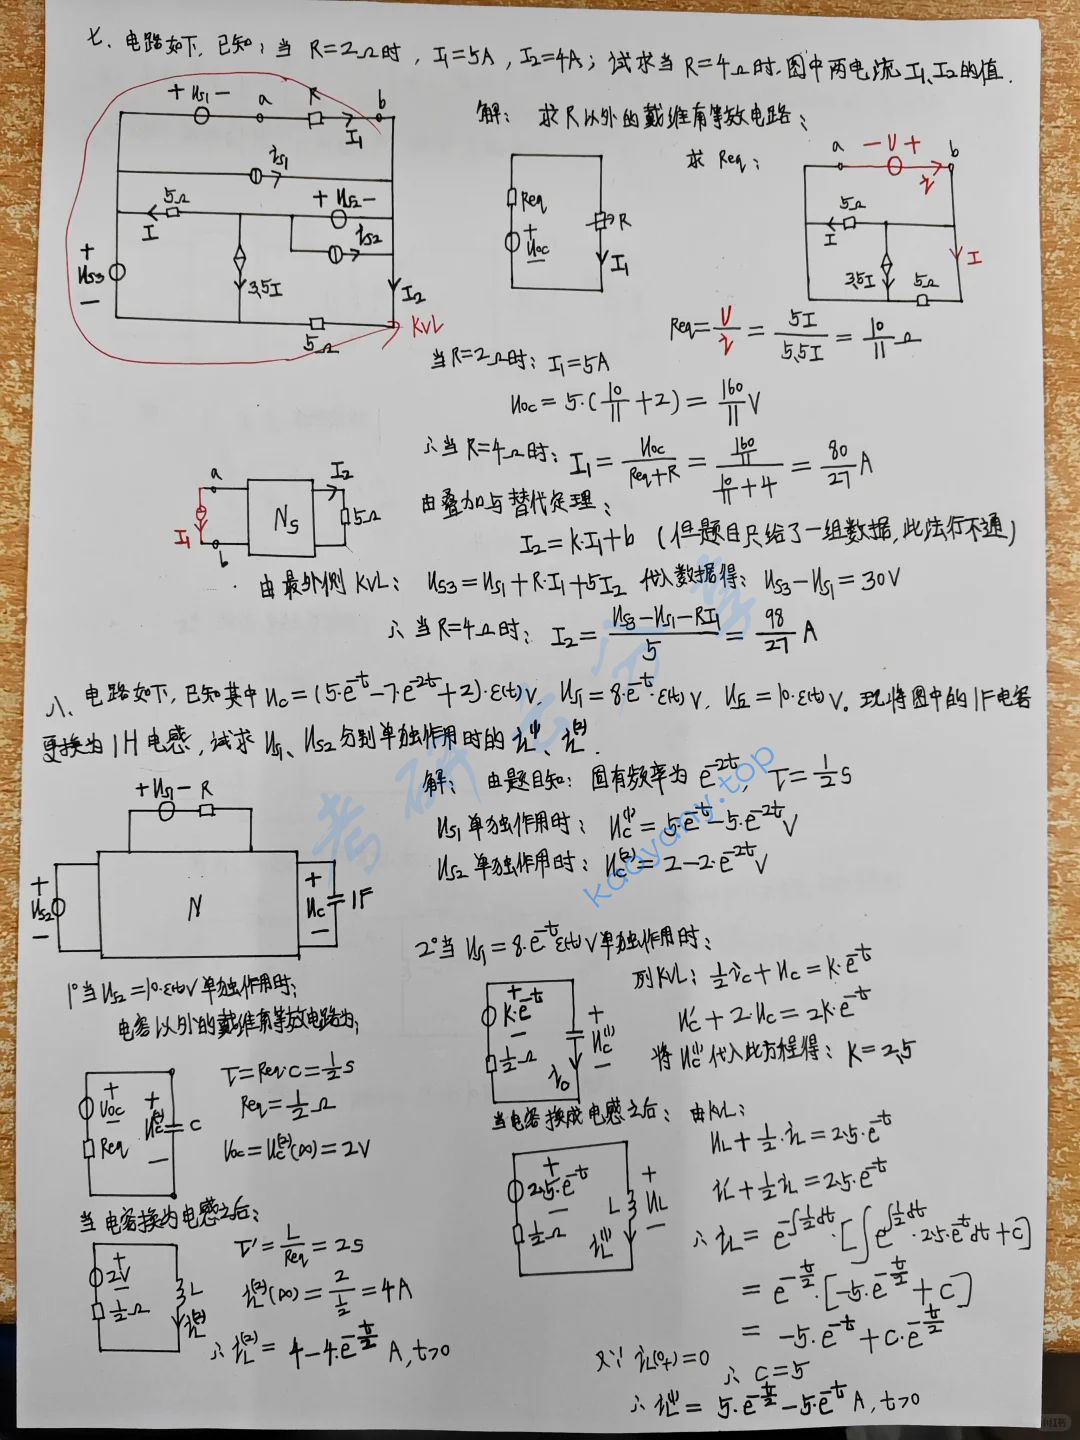 七、电路如下,已知:当 R=2Ω时, I₁=5A, I₂=4A; 试求当R=4Ω时,图中两电流 I₁、I₂的值.
+ Us₁ -
a
R
b
I₁
is₁
5Ω
I
+ Us₂ -
is₂
+
Us₃
-
3.5I
I₂
5Ω
KVL
解: 求R以外的戴维南等效电路;
Req
+
Uoc
-
R
I₁
求 Req:
a
- V +
b
i
5Ω
I
3.5I
5Ω
I
Req = V/i = 5I/5.5I = 10/11 Ω
当R=2Ω时: I₁=5A
Uoc = 5·(10/11 + 2) = 160/11 V
∴当R=4Ω时: I₁ = Uoc/(Req+R) = (160/11)/(10/11 + 4) = 80/27 A
a
I₂
I₁
Ns
5Ω
b
由叠加与替代定理:
I₂ = K·I₁ + b (但题目只给了一组数据,此法行不通)
由最外侧KVL: Us₃ = Us₁ + R·I₁ + 5I₂ 代入数据得: Us₃ - Us₁ = 30V
∴当R=4Ω时: I₂ = (Us₃-Us₁-RI₁)/5 = 98/27 A
八、电路如下,已知其中 Uc = (5·e^-t - 7·e^-2t + 2)·ε(t) V, Us₁ = 8·e^-t·ε(t) V, Us₂ = 10·ε(t) V。现将图中的1F电容
更换为1H电感,试求 Us₁、Us₂ 分别单独作用时的 iL⁽¹⁾、iL⁽²⁾.
+ Us₁ - R
+
Us₂
-
N
+
Uc
-
1F
解: 由题目知: 固有频率为 e^-2t, τ = 1/2 s
Us₁ 单独作用时: Uc⁽¹⁾ = 5·e^-t - 5·e^-2t V
Us₂ 单独作用时: Uc⁽²⁾ = 2 - 2·e^-2t V
1°当 Us₂ = 10·ε(t) V 单独作用时:
电容以外的戴维南等效电路为:
+
Uoc
-
Req
+
Uc⁽²⁾
-
C
τ = Req·C = 1/2 s
Req = 1/2 Ω
Uoc = Uc⁽²⁾(∞) = 2V
当电容换为电感之后:
+
2V
-
1/2 Ω
L
iL⁽²⁾
τ' = L/Req = 2s
iL⁽²⁾(∞) = 2/(1/2) = 4A
∴ iL⁽²⁾ = 4 - 4·e^-t/2 A, t>0
2°当 Us₁ = 8·e^-t ε(t) V 单独作用时:
+
K·e^-t
-
1/2 Ω
+
Uc⁽¹⁾
-
列KVL: 1/2 ic + Uc = K·e^-t
Uc' + 2·Uc = 2K·e^-t
将 Uc⁽¹⁾ 代入此方程得: K = 2.5
当电容换成电感之后: 由KVL:
+
2.5·e^-t
-
1/2 Ω
L
+
UL
-
iL⁽¹⁾
UL + 1/2·iL = 2.5·e^-t
iL' + 1/2 iL = 2.5·e^-t
∴ iL = e^-∫1/2 dt·[∫e^∫1/2 dt·2.5·e^-t dt + C]
= e^-t/2·[-5·e^-t/2 + C]
= -5·e^-t + C·e^-t/2
又∵ iL(0₊) = 0 ∴ C = 5
∴ iL⁽¹⁾ = 5·e^-t/2 - 5·e^-t A, t>0
kaoyany.top